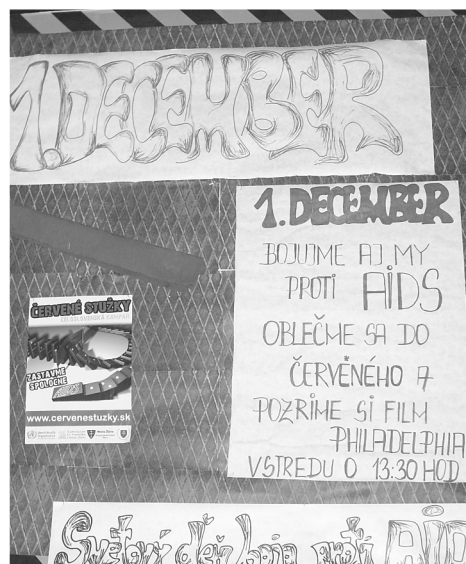 1. DECEMBER
1. DECEMBER
BOJUJME AJ MY
PROTI AIDS
OBLEČME SA DO
ČERVÉNÉHO A
POZRIME SI FILM
PHILADELPHIA
V STREDU O 13:30 HOD
ČERVENÉ STUŽKY
CELOSLOVENSKÁ KAMPAŇ
ZASTAVME
SPOLOČNE
www.cervenestuzky.sk
Svetový deň boja proti AID